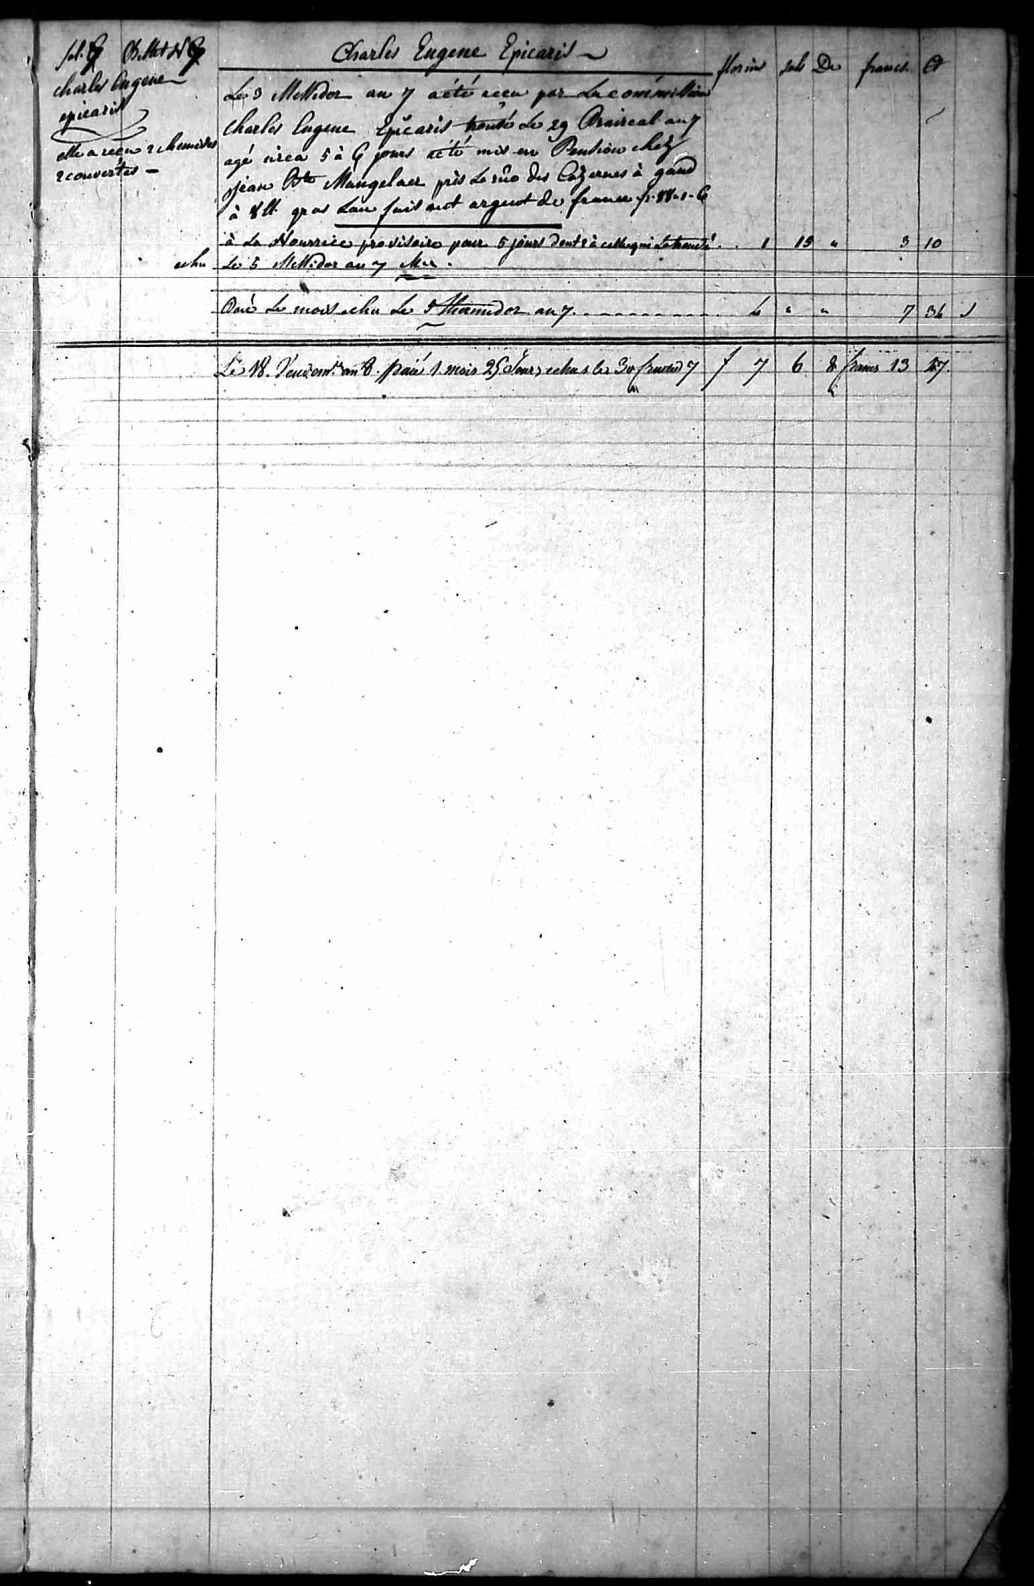 fol. 9 Billet N 9
Charles Eugene
epicaris
elle a recu 2 chemises
2 couvertes —
Charles Eugene Epicaris
florins sols De francs Ct
Le 3 Messidor an 7 a été recu par La commission
Charles Eugene Epicaris trouvé Le 29 Praireal an 7
agé circa 5 à 6 jours a été mis en Pension chez
Jean Bte Mangelaer près La rüe des Cazernes à gand
à 8 lt gros L'an faisant argent de france
à La Nourrice provisoire pour 5 jours dont 2 à celle qui L'a trouvé . . 1 15 " 3 10
echu Le 5 Messidor an 7
Païé Le mois echu Le 5 Thermidor an 7 . . . . . . . . . 4 " " 7 36
Le 18. Vendem.re an 8. païé 1. mois 25 Jours echus le 30 fructid 7 f 7 6 8 francs 13 27